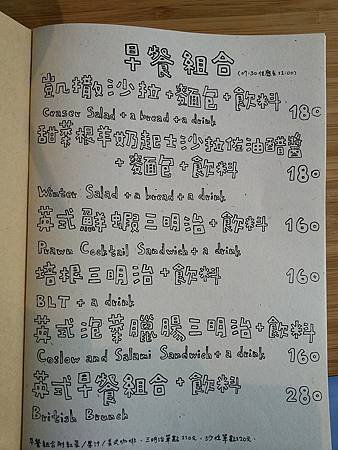 早餐組合 (07:30供應至12:00)
凱撒沙拉+麵包+飲料
Ceaser Salad + a bread + a drink 180
甜菜根羊奶起士沙拉佐油醋醬
+麵包+飲料
Winter Salad + a bread + a drink 180
英式鮮蝦三明治+飲料 160
Prawn Cocktail Sandwich + a drink
培根三明治+飲料 160
BLT + a drink
英式泡菜臘腸三明治+飲料
Coslow and Salami Sandwich + a drink 160
英式早餐組合+飲料 280
British Brunch
早餐組合附紅茶/果汁/美式咖啡、三明治單點110元、沙拉單點120元、